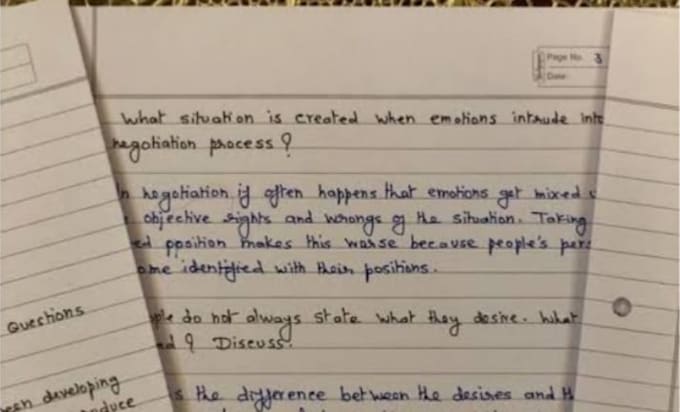 Page No. 3
Date:
What situation is created when emotions intrude
negotiation process ?
negotiation if often happens that emotions get mixed
objective rights and wrongs of the situation. Taking
position makes this worse because people's
identified with their positions.
do not always state what they desire. What
? Discuss.
the difference between the desires and
Questions
developing